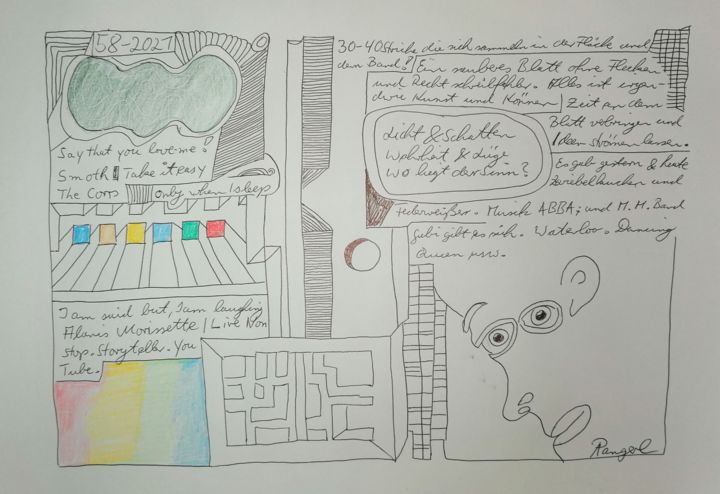 58-2021
Say that you love me!
Smoth | Take it easy
The Corrs | only when I sleep
I am said but, I am laughing
Alanis Morissette | Live Non
stop. Storyteller. You
Tube.
30-40 Striche die sich sammeln in der Fläche und
dem Band! | Ein sauberes Blatt ohne Flecken
und Rechtschreibfehler. Alles ist irgen-
dwie Kunst und Können | Zeit an dem
Blatt verbringen und
Ideen strömen lassen.
Licht & Schatten
Wahrheit & Lüge
Wo liegt der Sinn?
Es gab gestern & heute
Zwiebelkuchen und
Federweißer. Musik ABBA; und M.M. Band
gibt es nich. Waterloo. Dancing
Queen usw.
Rangerl